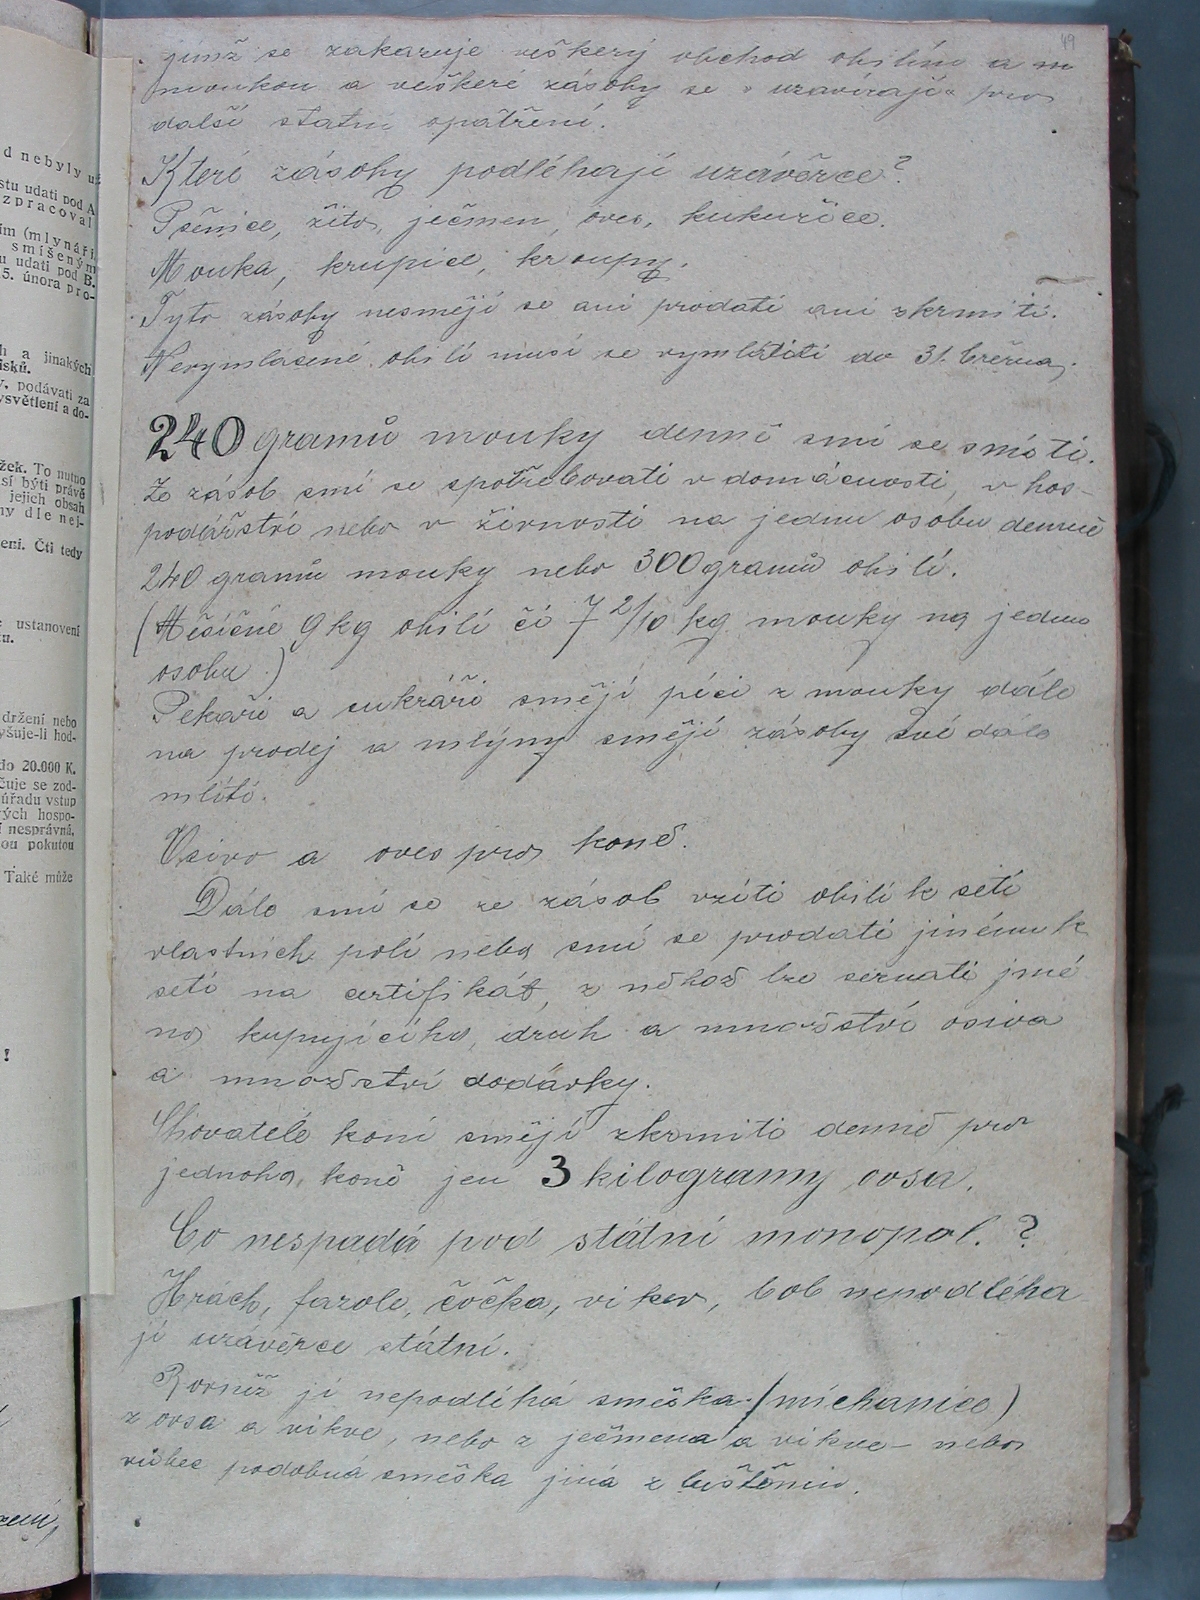 49
jímž se zakazuje veškerý obchod obilím a m
moukou a veškeré zásoby se "uzavírají" pro
další statní opatření.
Které zásoby podléhají uzávěrce?
Pšenice, žito, ječmen, oves, kukuřice.
Mouka, krupice, kroupy.
Tyto zásoby nesmějí se ani prodati ani zkrmiti.
Nevymlácené obilí musí se vymlátiti do 31. března.
240 gramů mouky denně smí se snísti.
Ze zásob smí se spotřebovati v domácnosti, v hos-
podářství nebo v živnosti na jednu osobu denně
240 gramů mouky nebo 300 gramů obilí.
(Měsíčně 9 kg obilí či 7 2/10 kg mouky na jednu
osobu.)
Pekaři a cukráři smějí péci z mouky dále
na prodej a mlýny smějí zásoby své dále
mlíti.
Osivo a oves pro koně.
Dále smí se ze zásob vzíti obilí k setí
vlastních polí nebo smí se prodati jinému k
setí na certifikát, z něhož lze seznati jmé
no kupujícího, druh a množství osiva
a množství dodávky.
Chovatelé koní smějí zkrmiti denně pro
jednoho koně jen 3 kilogramy ovsa.
Co nespadá pod státní monopol.?
Hrách, fazole, čočka, vikev, bob nepodléha
jí uzávěrce státní.
Rovněž jí nepodléhá směska (míchanice)
z ovsa a vikve, nebo z ječmena a vikve - nebo
vůbec podobná směska jiná z luštěnin.
d nebyly už
stu udati pod A
zpracoval
ím (mlynáři,
smíšeným
u udati pod B.
5. února pro-
h a jinakých
isků.
y, podávati za
ysvětlení a do-
žek. To nutno
sí býti právě
jejich obsah
ny dle nej-
ení. Čti tedy
ustanovení
u.
držení nebo
yšuje-li hod-
do 20.000 K.
čuje se zod-
úřadu vstup
ých hospo-
í nesprávná,
ou pokutou
Také může
!